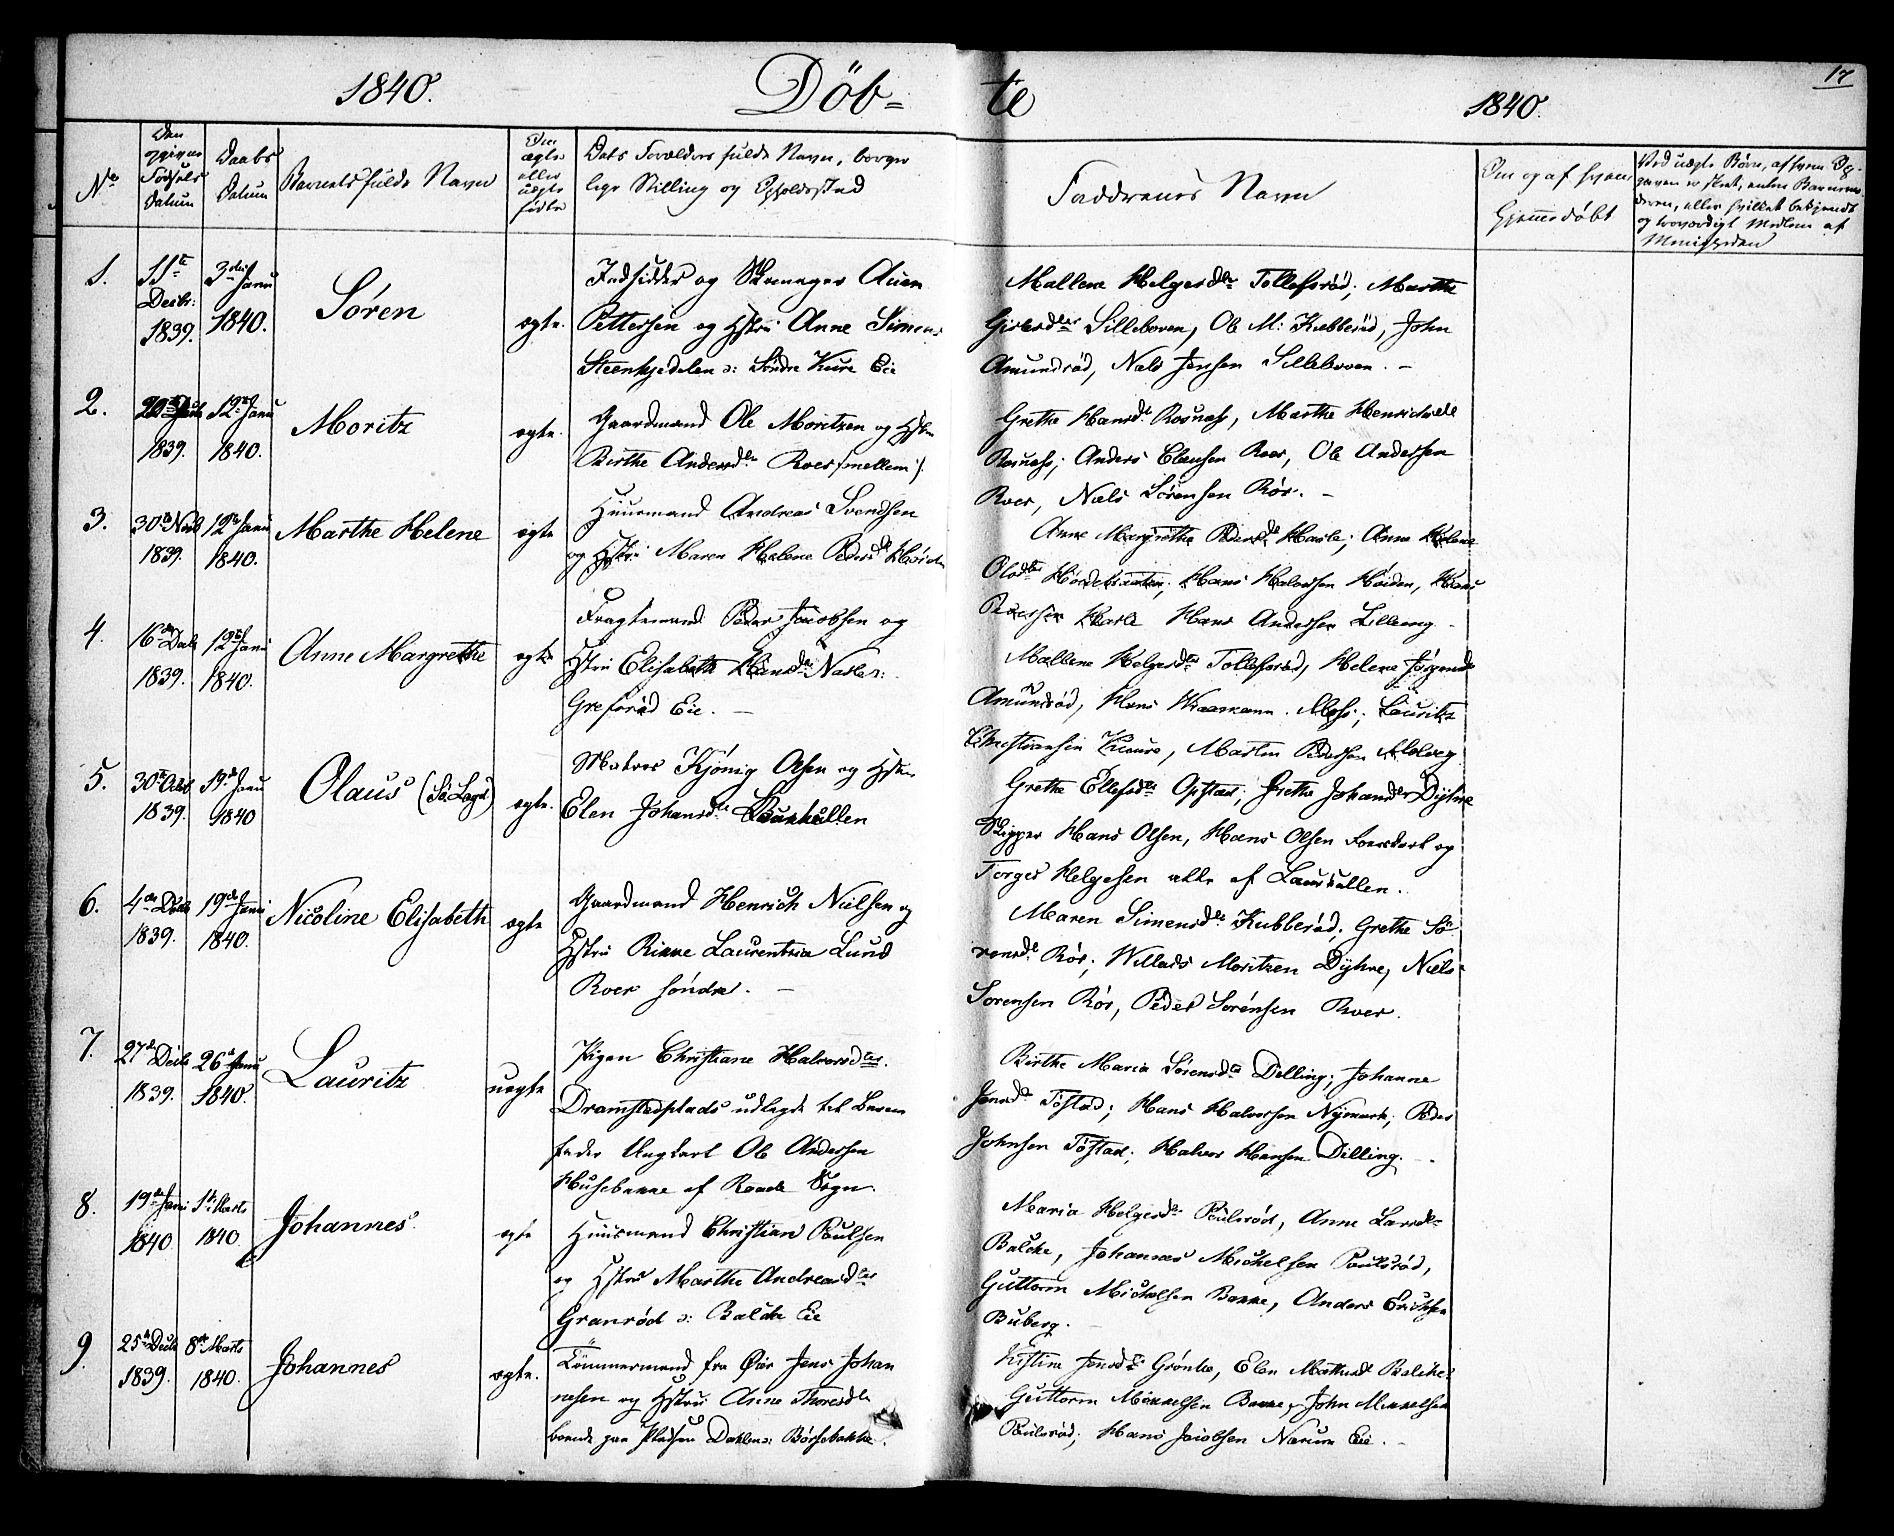 17
1840. Döb= te 1840.
No
Den opgivne Fødsels Datum
Daabs Datum
Barnets fulde Navn
Om ægte eller uægte fødte
Dets Forældres fulde Navn, borger
lige Stilling og Opholdssted
Faddrenes Navn
Om og af hvem
Hjemmedøbt
Ved uægte Børn, af hvem Op-
gaven er skeet, enten Barnemo-
deren, eller hvilket bekjendt
og troværdigt Medlem af
Menigheden
1. 11te Decbr: 1839. 3die Janu 1840. Søren ægte.
Indsidder og Skomager
Pettersen og Hstru Anne Simens
o: Søndre Kure Eie
Mallene Helgersdtr Tollefsrød; Marthe
Sillebaven, Ole M: Kubberød, John
Amundrød, Nels Jensen Sillebaven. –
2. 1839. 12te Janu 1840. Moritz ægte.
Gaardmand Ole Moritzen og Hstru
Birthe Andersdtr Roer (mellem).
Grethe Hansdtr Rosnæss, Marthe
Rosnæss; Anders Clausen Roer, Ole Andersen
Roer, Niels Sørensen Rør. –
3. 30te Novb 1839. 12te Janu 1840. Marthe Helene ægte
Huusmand Andreas Svendsen
og Hstru Maren Helene Pedersdtr
Anne Margrethe Pedersdtr Anne Helene
Olsdtr Hans Halvorsen Høiden, Hans
Pedersen Hans Andersen Lilleeng –
4. 16de Decb 1839. 12te Janu 1840. Anne Margrethe ægte
Fragtemand Peder Jacobsen og
Hstru Elisabeth Hansdtr
Grefsrød Eie. –
Mallene Helgersdtr Tollefsrød, Helene
Amundrød, Hans Moss; Lauritz
Christiansen Martin Pedersen
5. 30te Octb 1839. 19de Janu 1840 Olaus ægte.
Matros Kjönig Olsen og Hstru
Elen Johansdtr
Grethe Ellefsdtr Opstad; Grethe Johansdtr Dyhre
Skipper Hans Olsen, Hans Olsen og
Torger Helgesen alle af Laurkullen.
6. 4de Decb 1839. 19de Janu 1840. Nicoline Elisabeth ægte
Gaardmand Henrich Nielsen og
Hstru Rikke Laurentzia Lund
Roer söndre. –
Maren Simensdtr Kubberød; Grethe Sø-
rensdtr Rør; Willads Moritzen Dyhre, Niels
Sørensen Rør, Peder Sørensen Roer.
7. 27de Decb 1839. 26de Janu 1840. Lauritz uægte
Pigen Christiane Halvorsdtr.
Dramstadplads udlagde til Barne
fader Ungkarl Ole Andersen
Husebakke af Raade Sogn.
Birthe Maria Sørensdtr Dilling; Johanne
Jensdtr Töfstad; Hans Halvorsen Nÿmark; Peder
Johnsen Töfstad; Halvor Hansen Dilling. –
8. 19de Janu 1840 1te Marts 1840 Johannes ægte
Huusmand Christian Poulsen
og Hstru Marthe Andreasdtr
Granrød o: Balche Eie
Maria Helgersdtr Poulsrød, Anne Larsdtr
Balche, Johannes Michelsen Poulsrød,
Guttorm Michelsen Bakke, Anders Erichsen
Buberg.
9 25de Decb 1839. 8de Marts 1840. Johannes ægte.
Tømmermand fra Jens Johan
nesen og Hstru Anne Thoresdtr
boende paa Pladsen
Kistine Jensdtr Grönlie, Elen Balche
Guttorm Mikkelsen Bakke, John Mikkelsen
Poulsrød; Hans Jacobsen Narum Eie. –